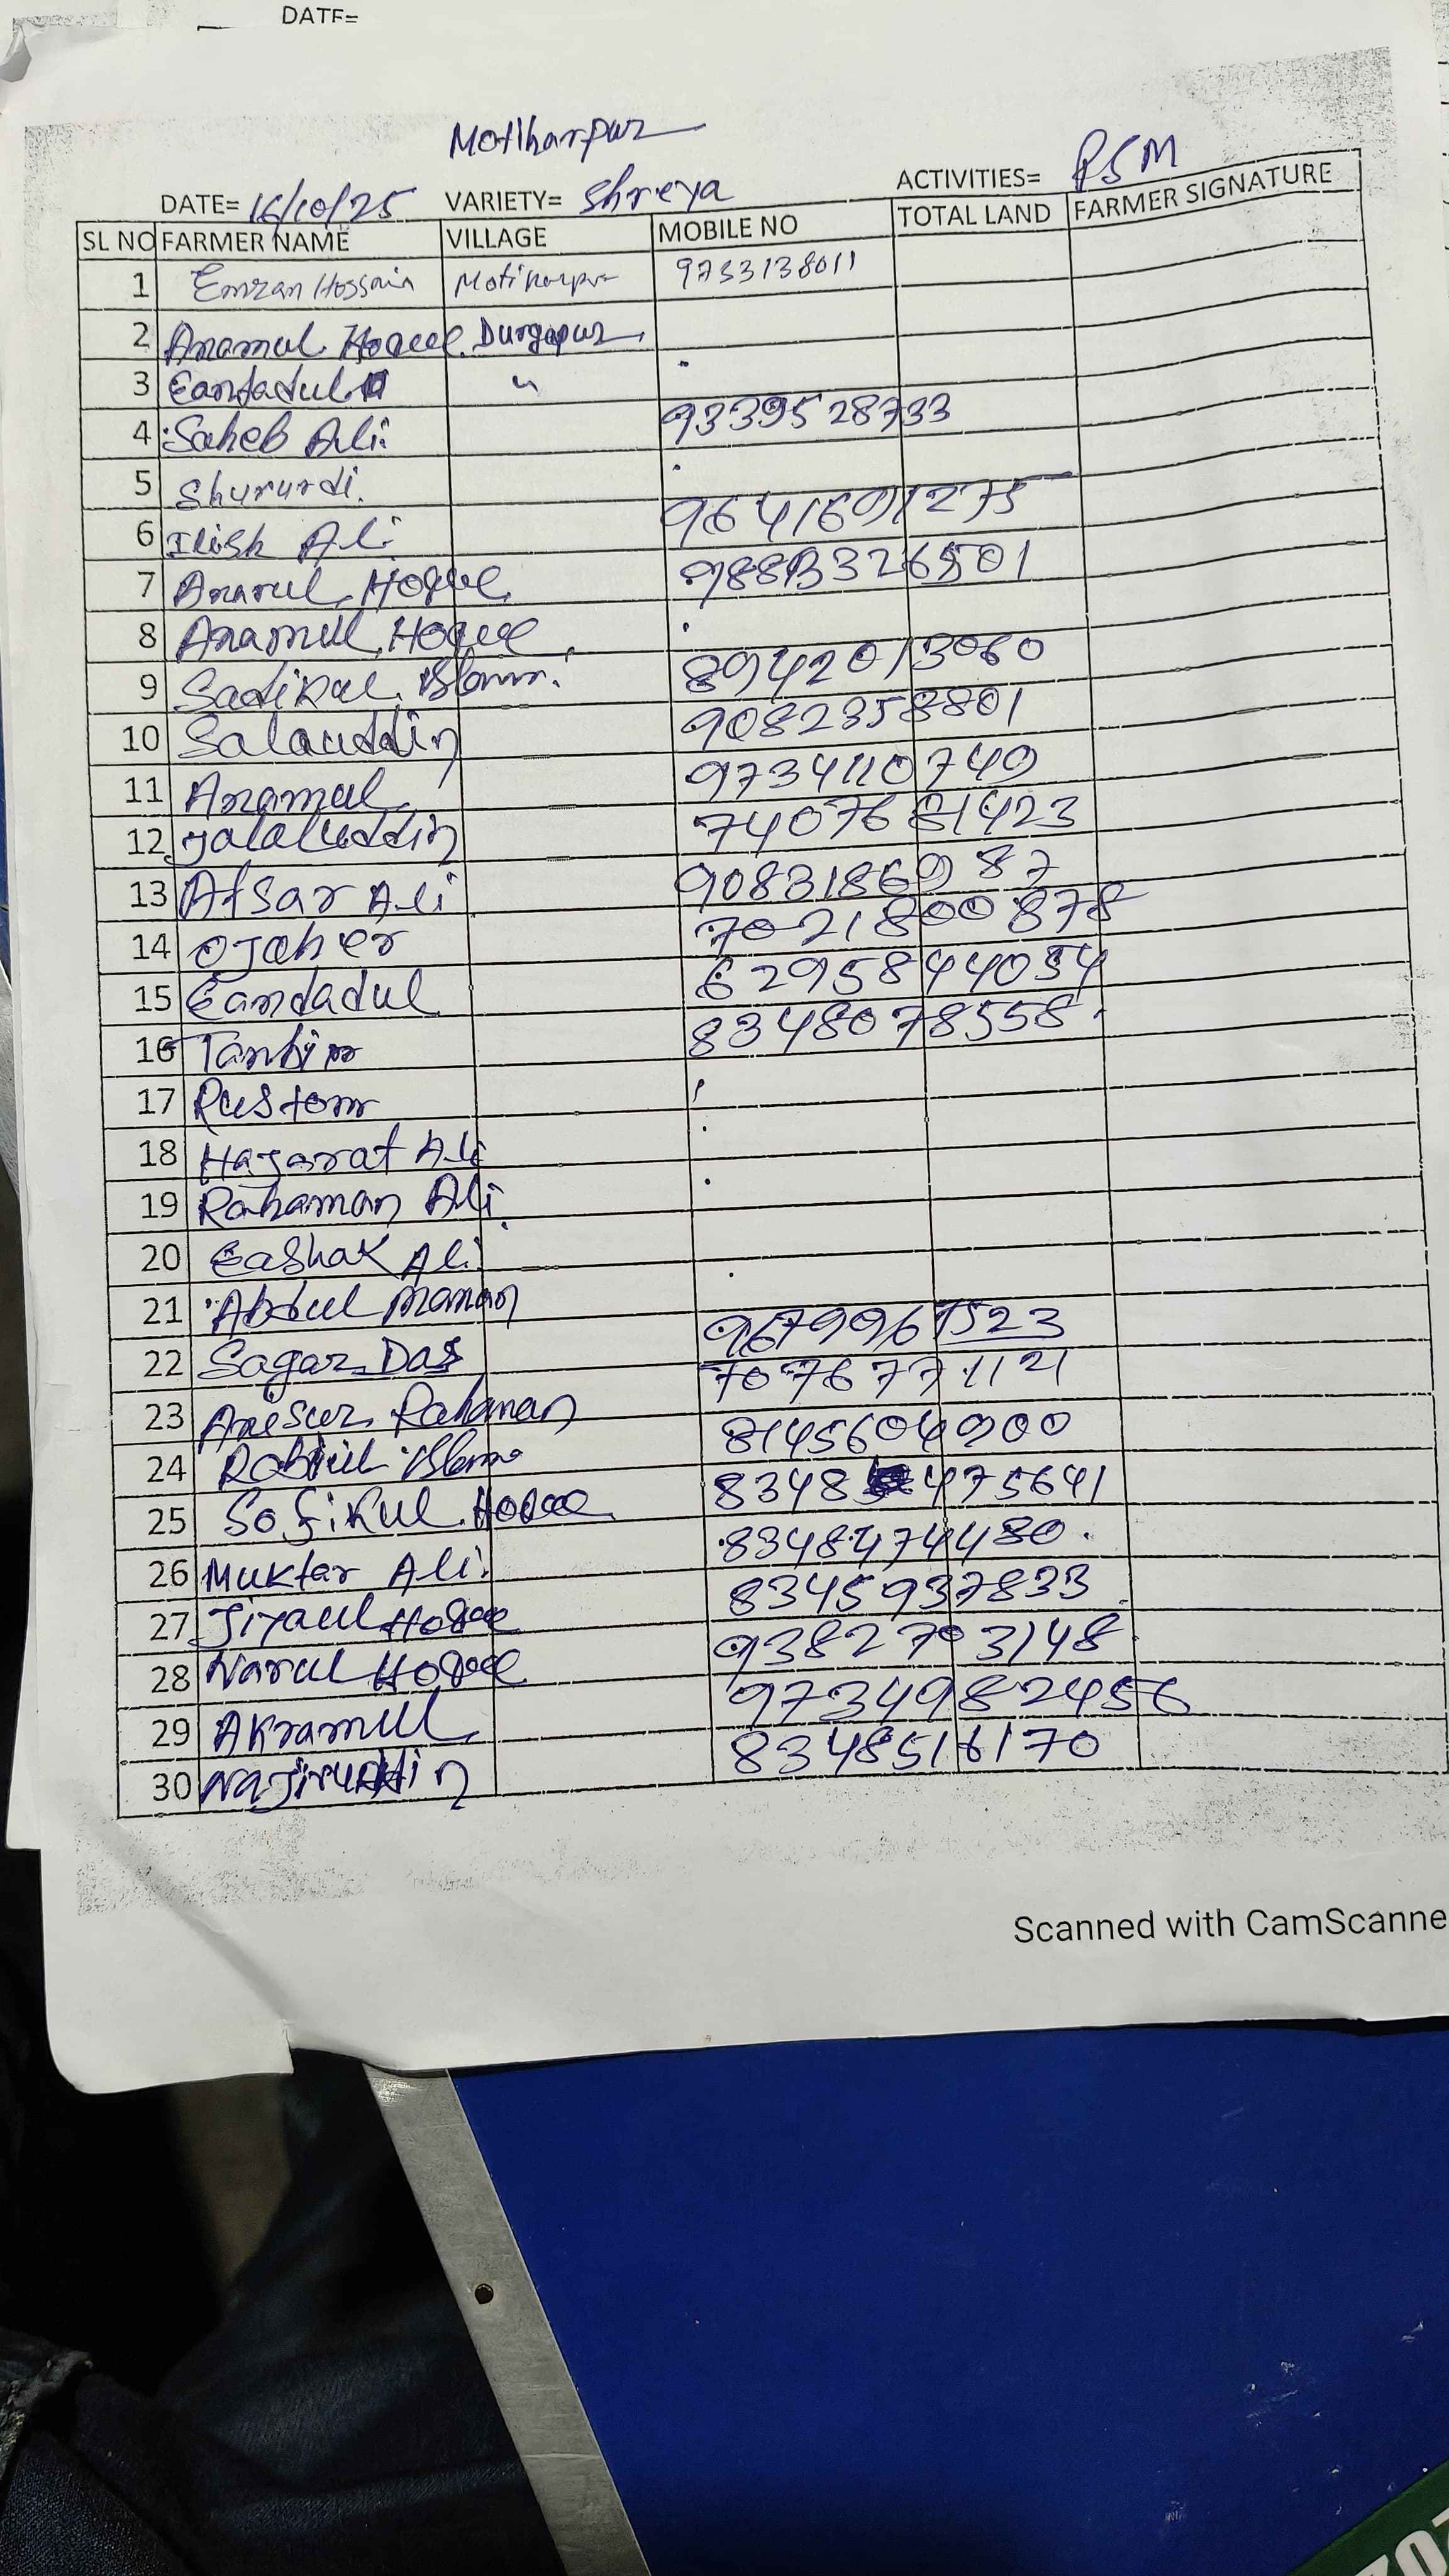 DATE=
Motiharpur
DATE= 16/10/25 VARIETY= Shreya ACTIVITIES= PSM
SL NO FARMER NAME VILLAGE MOBILE NO TOTAL LAND FARMER SIGNATURE
1 Emran Hossain Motiharpur 9733138011
2 Anamul Hoque Durgapur
3 Eandadul "
4 Saheb Ali 9339528733
5 Shururdi
6 Ilish Ali 9641691275
7 Anarul Hoque
8 Anamul Hoque
9 Sadikul Islam 8942013060
10 Salauddin 9082358801
11 Anamul 9734110749
12 Jalaluddin 7407681423
13 Afsar Ali 9083186987
14 Ojaher 7021800878
15 Eandadul 6295844054
16 Tanbir 8348078558
17 Rustom
18 Hagarat Ali
19 Rahaman Ali
20 Eashak Ali
21 Abdul Manan
22 Sagar Das 9679961523
23 Anesur Rahaman 7076771121
24 Rabiul Islam 8145604900
25 Sofikul Hoque 8348475641
26 Muktar Ali 8348474480
27 Jiyaul Hoque 8345937833
28 Narul Hoque 9382703148
29 Akramul 9734982456
30 Najiruddin 8348516170
Scanned with CamScanne